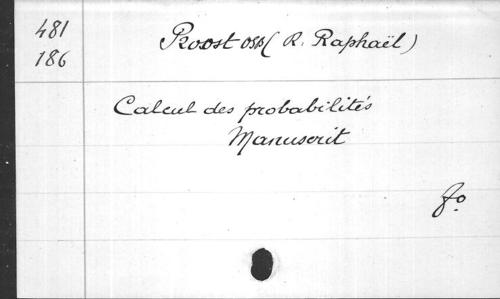 481
186
Proost OSB (R. Raphaël)
Calcul des probabilités
Manuscrit
fo.